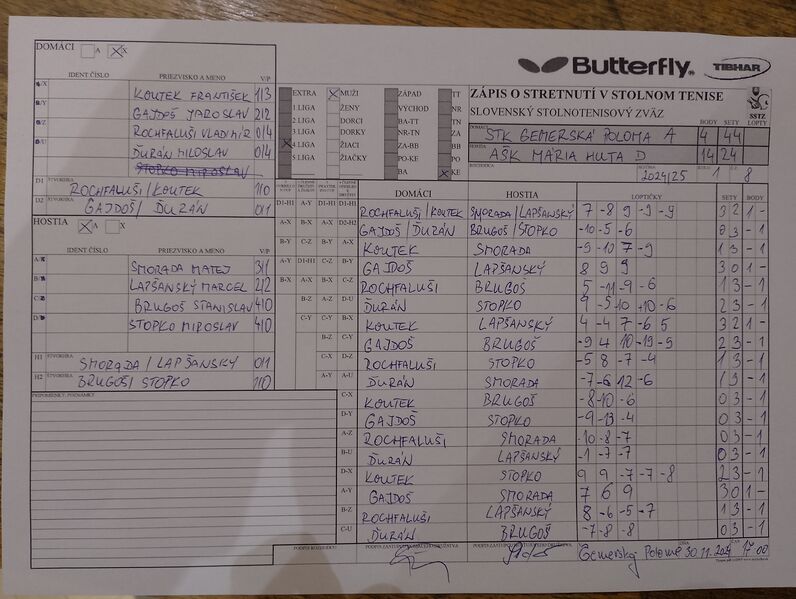 DOMÁCI A X
IDENT ČÍSLO PRIEZVISKO A MENO V/P
A/X KOUTEK FRANTIŠEK 1/3
B/Y GAJDOŠ JAROSLAV 2/2
C/Z ROCHFALUŠI VLADIMÍR 0/4
D/U ĎURÁN MILOSLAV 0/4
STOPKO MIROSLAV
D1 ŠTVORHRA ROCHFALUŠI/KOUTEK 1/0
D2 ŠTVORHRA GAJDOŠ/ ĎURÁN 0/1
HOSTIA A X
IDENT ČÍSLO PRIEZVISKO A MENO V/P
SMORADA MATEJ 3/1
LAPŠANSKÝ MARCEL 2/2
BRUGOŠ STANISLAV 4/0
STOPKO MIROSLAV 4/0
H1 ŠTVORHRA SMORADA / LAPŠANSKÝ 0/1
H2 ŠTVORHRA BRUGOŠ/ STOPKO 1/0
PRIPOMIENKY, POZNÁMKY
Butterfly
TIBHAR
EXTRA X MUŽI ZÁPAD TT
1.LIGA ŽENY VÝCHOD NR
2.LIGA DORCI BA-TT TN
3.LIGA DORKY NR-TN ZA
X 4.LIGA ŽIACI ZA-BB BB
5.LIGA ŽIAČKY PO-KE PO
BA X KE
ZÁPIS O STRETNUTÍ V STOLNOM TENISE
SLOVENSKÝ STOLNOTENISOVÝ ZVÄZ
SSTZ
BODY SETY LOPTY
DOMÁCI STK GEMERSKÁ POLOMA A 4 44
HOSTIA AŠK MÁRIA HUTA D 14 24
ROZHODCA SEZÓNA 2024/25 1 8
DOMÁCI HOSTIA LOPTIČKY SETY BODY
D1-H1 A-Y D1-H1 D1-H1 ROCHFALUŠI/KOUTEK SMORADA/LAPŠANSKÝ 7 -8 9 -9 -9 3 2 1 -
A-X B-X A-X D2-H2 GAJDOŠ/ĎURÁN BRUGOŠ/STOPKO -10 -5 -6 0 3 - 1
B-Y C-Z B-Y A-X KOUTEK SMORADA -9 -10 7 -9 1 3 - 1
A-Y D1-H1 C-Z B-Y GAJDOŠ LAPŠANSKÝ 8 9 9 3 0 1 -
B-X A-X B-X C-Z ROCHFALUŠI BRUGOŠ 5 -11 -9 -6 1 3 - 1
B-Z A-Z D-U ĎURÁN STOPKO 2 3 - 1
C-Y B-X KOUTEK LAPŠANSKÝ 4 -4 7 -6 5 3 2 1 -
B-Z C-Y GAJDOŠ BRUGOŠ -9 4 10 -19 -9 2 3 - 1
C-X D-Z ROCHFALUŠI STOPKO -5 8 -7 -4 1 3 - 1
A-Y A-U ĎURÁN SMORADA -7 -6 12 -6 1 3 - 1
C-X KOUTEK BRUGOŠ -8 -10 -6 0 3 - 1
D-Y GAJDOŠ STOPKO -9 -13 -4 0 3 - 1
A-Z ROCHFALUŠI SMORADA -10 -8 -7 0 3 - 1
B-U ĎURÁN LAPŠANSKÝ -1 -7 -7 0 3 - 1
D-X KOUTEK STOPKO 9 9 -7 -7 -8 2 3 - 1
A-Y GAJDOŠ SMORADA 7 6 9 3 0 1 -
B-Z ROCHFALUŠI LAPŠANSKÝ 8 -6 -5 -7 1 3 - 1
C-U ĎURÁN BRUGOŠ -7 -8 -8 0 3 - 1
PODPIS ROZHODCU Gemerská Poloma 30.11.2024 17:00